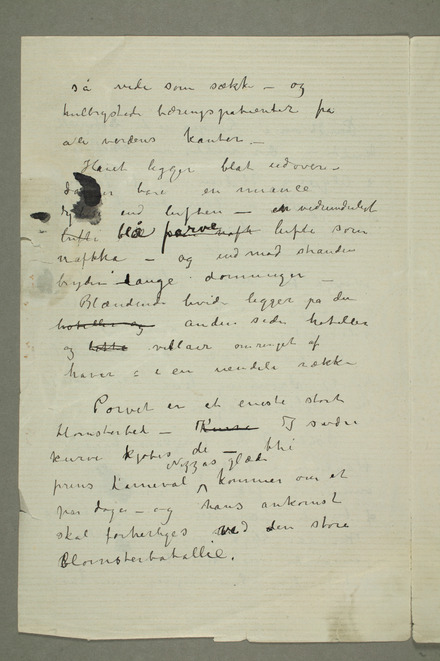 så vide som sække – og
hulbrystede tæringspatienter fra
alle verdens kanter. –
Havet ligger blåt udover –
bare en nuance
end luften – en vidunderlig
blå farve luft som
– og ind mod stranden
bryder lange dønninger –
Blændende hvide ligger på den
hoteller og anden side hoteller
og villaer omringet af
haver – i en uendelig række –
Torvet er et eneste stort
blomsterbed – Kurve På søndre
kurve kjøbes de – thi
Nizzas glade
prins Karneval kommer om et
par dage – og hans ankomst
skal forherliges ved den store
Blomsterbatallie.